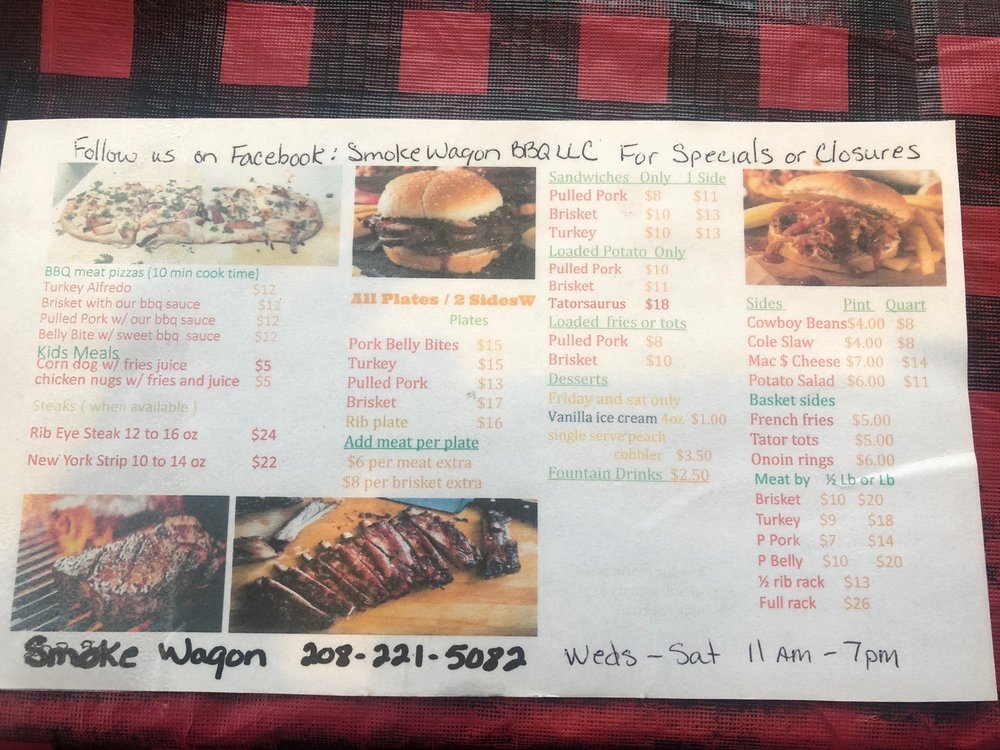 Follow us on Facebook: Smoke Wagon BBQ LLC For Specials or Closures
BBQ meat pizzas (10 min cook time)
Turkey Alfredo $12
Brisket with our bbq sauce $12
Pulled Pork w/ our bbq sauce $12
Belly Bite w/ sweet bbq sauce $12
Kids Meals
Corn dog w/ fries juice $5
chicken nugs w/ fries and juice $5
Steaks ( when available )
Rib Eye Steak 12 to 16 oz $24
New York Strip 10 to 14 oz $22
All Plates / 2 SidesW
Plates
Pork Belly Bites $15
Turkey $15
Pulled Pork $13
Brisket $17
Rib plate $16
Add meat per plate
$6 per meat extra
$8 per brisket extra
Sandwiches Only 1 Side
Pulled Pork $8 $11
Brisket $10 $13
Turkey $10 $13
Loaded Potato Only
Pulled Pork $10
Brisket $11
Tatorsaurus $18
Loaded fries or tots
Pulled Pork $8
Brisket $10
Desserts
Friday and sat only
Vanilla ice cream 4oz $1.00
single serve peach
cobbler $3.50
Fountain Drinks $2.50
Sides Pint Quart
Cowboy Beans $4.00 $8
Cole Slaw $4.00 $8
Mac $ Cheese $7.00 $14
Potato Salad $6.00 $11
Basket sides
French fries $5.00
Tator tots $5.00
Onoin rings $6.00
Meat by ½ Lb or Lb
Brisket $10 $20
Turkey $9 $18
P Pork $7 $14
P Belly $10 $20
½ rib rack $13
Full rack $26
Smoke Wagon 208-221-5082 Weds - Sat 11 AM - 7pm